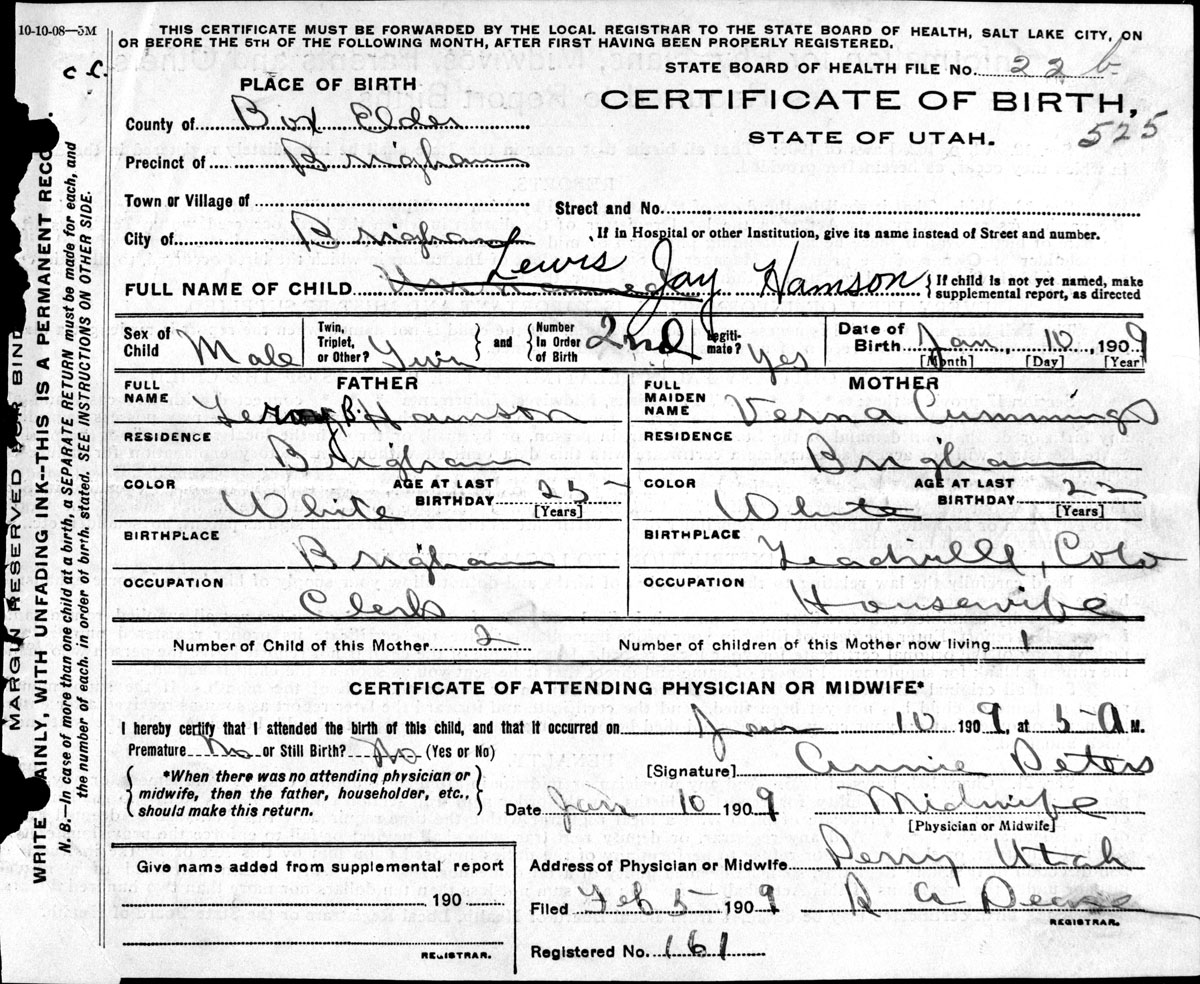 10-10-08—5M
THIS CERTIFICATE MUST BE FORWARDED BY THE LOCAL REGISTRAR TO THE STATE BOARD OF HEALTH, SALT LAKE CITY, ON
OR BEFORE THE 5TH OF THE FOLLOWING MONTH, AFTER FIRST HAVING BEEN PROPERLY REGISTERED.
STATE BOARD OF HEALTH FILE No. 22 b
PLACE OF BIRTH
CERTIFICATE OF BIRTH,
STATE OF UTAH.
525
County of Box Elder
Precinct of Brigham
Town or Village of
Street and No.
City of Brigham
If in Hospital or other Institution, give its name instead of Street and number.
FULL NAME OF CHILD Unnamed Lewis Jay Hamson
{If child is not yet named, make
supplemental report, as directed
Sex of Child Male
Twin, Triplet, or Other? Twin
{and} Number In Order of Birth 2nd
Legitimate? Yes
Date of Birth Jan 10, 1909
[Month] [Day] [Year]
FATHER
FULL NAME Leroy B. Hamson
RESIDENCE Brigham
COLOR White
AGE AT LAST BIRTHDAY 25
[Years]
BIRTHPLACE Brigham
OCCUPATION Clerk
MOTHER
FULL MAIDEN NAME Verna Cummings
RESIDENCE Brigham
COLOR White
AGE AT LAST BIRTHDAY 22
[Years]
BIRTHPLACE Leadville, Colo
OCCUPATION Housewife
Number of Child of this Mother 2
Number of children of this Mother now living 1
CERTIFICATE OF ATTENDING PHYSICIAN OR MIDWIFE*
I hereby certify that I attended the birth of this child, and that it occurred on Jan 10 1909, at 5 A M.
Premature No or Still Birth? No (Yes or No)
{*When there was no attending physician or
midwife, then the father, householder, etc.,
should make this return.}
[Signature] Annie Peters
Date Jan 10 1909
Midwife
[Physician or Midwife]
Give name added from supplemental report
190
REGISTRAR.
Address of Physician or Midwife Perry Utah
Filed Feb 5 1909
R A Deans
REGISTRAR.
Registered No. 161
MARGIN RESERVED FOR BIND
WRITE AINLY, WITH UNFADING INK--THIS IS A PERMANENT RECO
N. B.—In case of more than one child at a birth, a SEPARATE RETURN must be made for each, and
the number of each, in order of birth, stated. SEE INSTRUCTIONS ON OTHER SIDE.